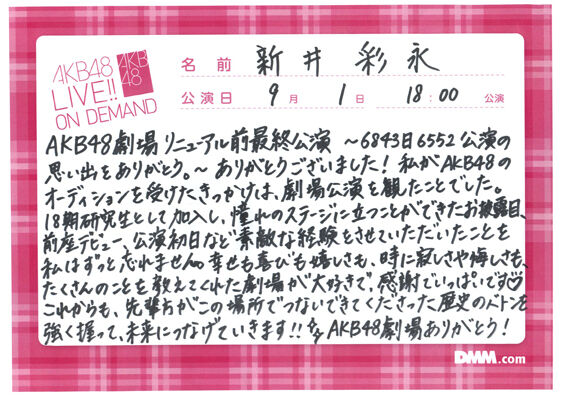 AKB48
LIVE!!
ON DEMAND
AKB
48
名前 新井 彩永
公演日 9月 1日 18:00 公演
AKB48劇場 リニューアル前最終公演 〜6843日6552公演の
思い出をありがとう。〜 ありがとうございました! 私がAKB48の
オーディションを受けたきっかけは、劇場公演を観たことでした。
18期研究生として加入し、憧れのステージに立つことができたお披露目、
前座デビュー、公演初日など素敵な経験をさせていただいたことを
私はずっと忘れません。幸せも喜びも嬉しさも、時に寂しさや悔しさも、
たくさんのことを教えてくれた劇場が大好きで、感謝でいっぱいです♡
これからも、先輩方がこの場所でつないできてくださった歴史のバトンを
強く握って、未来につなげていきます!! AKB48劇場ありがとう!
DMM.com